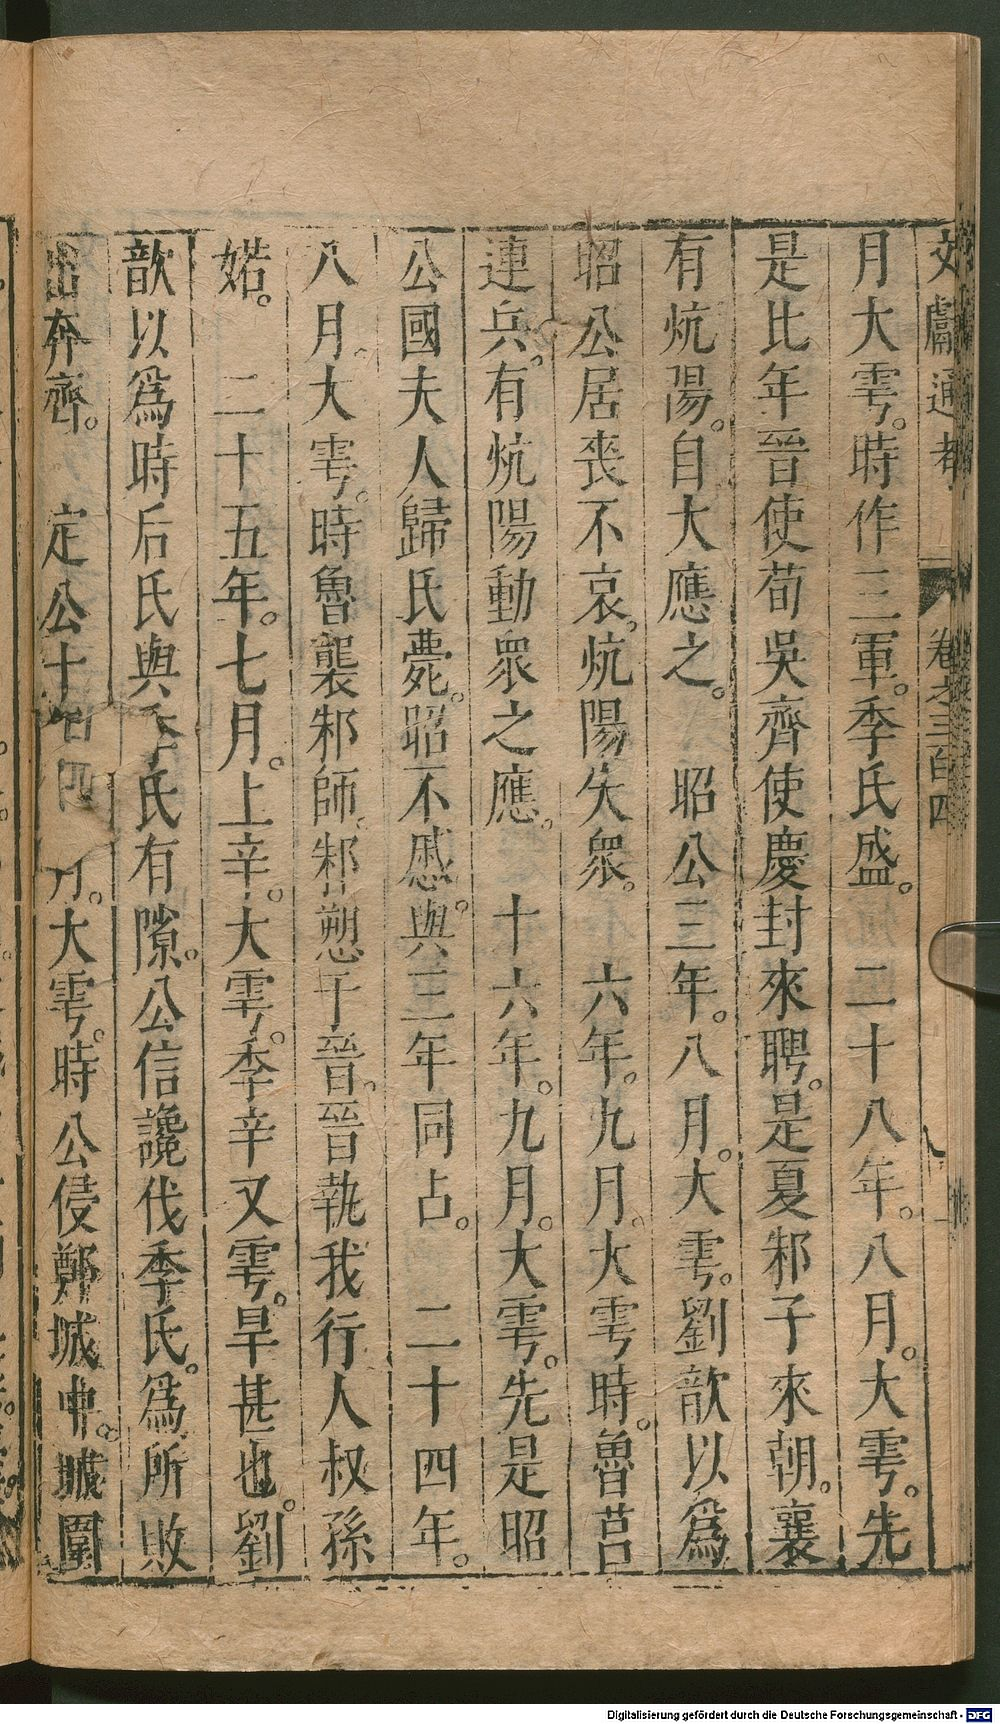 文獻通考 卷之三百四 八
月大雩。時作三軍。季氏盛。 二十八年。八月。大雩。先
是比年晉使荀吳齊使慶封來聘。是夏邾子來朝。襄
有炕陽。自大應之。 昭公三年。八月。大雩。劉歆以爲
昭公居喪不哀。炕陽失衆。 六年。九月。大雩時。魯莒
連兵。有炕陽動衆之應。 十六年。九月。大雩。先是昭
公國夫人歸氏薨。昭不慼。與三年同占。 二十四年。
八月。大雩。時魯襲邾師。邾愬于晉。晉執我行人叔孫
婼。 二十五年。七月。上辛。大雩。季辛又雩。旱甚也。劉
歆以爲時后氏與季氏有隙。公信讒伐季氏。爲所敗
出奔齊。 定公十 月。大雩。時公侵鄭城中。城圍
Digitalisierung gefördert durch die Deutsche Forschungsgemeinschaft - DFG